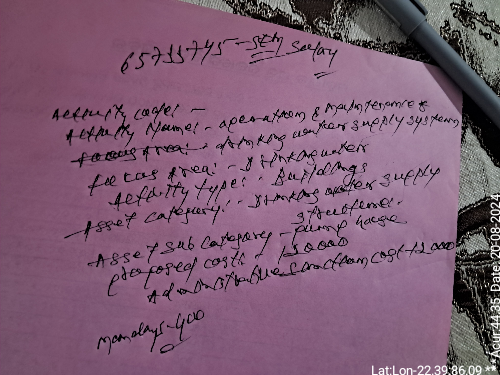 65733745 - Sem Salay
Activity code: -
Activity Name: - operation & maintenance of
drinking water supply system
focus Area: - drinking water
Activity type: - Buildings
Asset category: - drinking water supply
structures -
Asset sub category - pump house
proposed cost: - 12000
Administrative sanction cost - 12000
Mandays - 400
Lat:Lon-22.39,86.09 **
** Acur:44.35 Date:20-08-2024